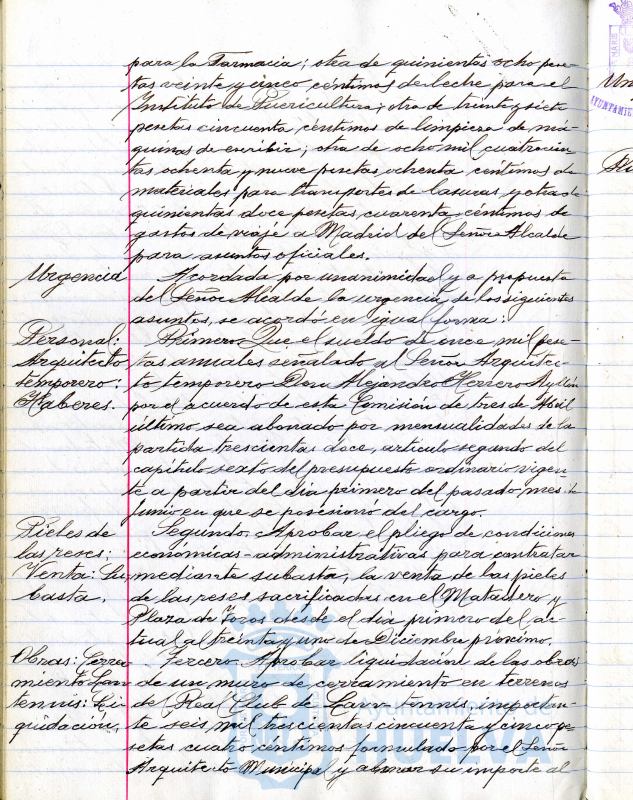 para la Farmacia; otra de quinientas ocho pese-
tas veinte y cinco céntimos de leche para el
Instituto de Puericultura; otra de treinta y siete
pesetas cincuenta céntimos de limpieza de má-
quinas de escribir; otra de ocho mil cuatrocien-
tas ochenta y nueve pesetas ochenta céntimos de
materiales para transportes de basuras y otra de
quinientas doce pesetas cuarenta céntimos de
gastos de viaje a Madrid del Señor Alcalde
para asuntos oficiales.
Urgencia
Acordada por unanimidad y a propuesta
del Señor Alcalde la urgencia de los siguientes
asuntos, se acordó en igual forma:
Personal:
Arquitecto
temporero:
Haberes.
Primero. Que el sueldo de once mil pese-
tas anuales señalado al Señor Arquitec-
to temporero Don Alejandro Herrero Ayllón
por el acuerdo de esta Comisión de tres de Abril
último sea abonado por mensualidades de la
partida trescientas doce, artículo segundo del
capítulo sexto del presupuesto ordinario vigen-
te a partir del dia primero del pasado mes de
Junio en que se posesionó del cargo.
Pieles de
las reses:
Venta: Su
basta.
Segundo. Aprobar el pliego de condiciones
económicas-administrativas para contratar
mediante subasta, la venta de las pieles
de las reses sacrificadas en el Matadero y
Plaza de Toros desde el dia primero del ac-
tual al treinta y uno de Diciembre próximo.
Obras: Cerra
miento Lawn
tennis: Li-
quidación.
Tercero. Aprobar liquidación de las obras
de un muro de cerramiento en terrenos
del Real Club de Lawn tennis, importan-
te seis mil trescientas cincuenta y cinco pe-
setas cuatro céntimos formulado por el Señor
Arquitecto Municipal y abonar su importe al
Ayuntamiento de
HUELVA